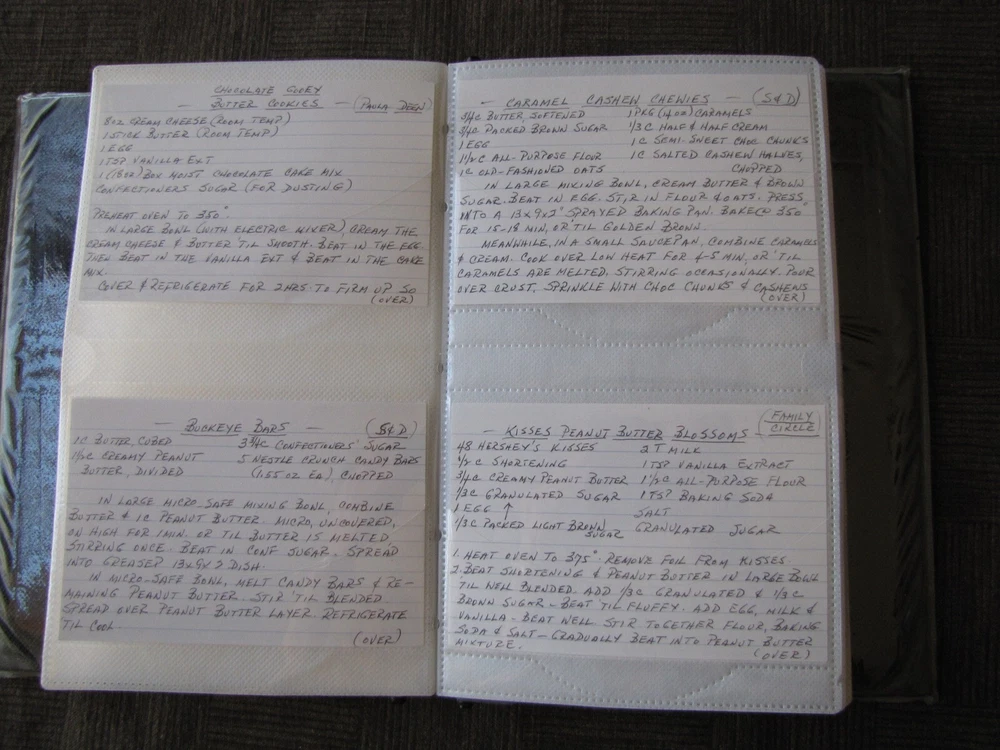 CHOCOLATE GOOEY
- BUTTER COOKIES - (PAULA DEEN)
8OZ CREAM CHEESE (ROOM TEMP)
1 STICK BUTTER (ROOM TEMP)
1 EGG
1 TSP VANILLA EXT
1 (18OZ) BOX MOIST CHOCOLATE CAKE MIX
CONFECTIONERS SUGAR (FOR DUSTING)
PREHEAT OVEN TO 350°.
IN LARGE BOWL (WITH ELECTRIC MIXER), CREAM THE
CREAM CHEESE & BUTTER 'TIL SMOOTH. BEAT IN THE EGG.
THEN BEAT IN THE VANILLA EXT & BEAT IN THE CAKE
MIX.
COVER & REFRIGERATE FOR 2 HRS TO FIRM UP SO
(OVER)
- BUCKEYE BARS - (S&D)
1C BUTTER, CUBED 3 3/4C CONFECTIONERS' SUGAR
1 1/2C CREAMY PEANUT 5 NESTLE CRUNCH CANDY BARS
BUTTER, DIVIDED (1.55 OZ EA), CHOPPED
IN LARGE MICRO-SAFE MIXING BOWL, COMBINE
BUTTER & 1C PEANUT BUTTER. MICRO, UNCOVERED,
ON HIGH FOR 1 MIN. OR TIL BUTTER IS MELTED,
STIRRING ONCE. BEAT IN CONF SUGAR. SPREAD
INTO GREASED 13x9x2 DISH.
IN MICRO-SAFE BOWL, MELT CANDY BARS & RE-
MAINING PEANUT BUTTER. STIR 'TIL BLENDED.
SPREAD OVER PEANUT BUTTER LAYER. REFRIGERATE
TIL COOL.
(OVER)
- CARAMEL CASHEW CHEWIES - (S&D)
3/4C BUTTER, SOFTENED 1 PKG (14 OZ) CARAMELS
3/4C PACKED BROWN SUGAR 1/3C HALF & HALF CREAM
1 EGG 1C SEMI-SWEET CHOC CHUNKS
1 1/2C ALL-PURPOSE FLOUR 1C SALTED CASHEW HALVES,
1C OLD-FASHIONED OATS CHOPPED
IN LARGE MIXING BOWL, CREAM BUTTER & BROWN
SUGAR. BEAT IN EGG. STIR IN FLOUR & OATS. PRESS
INTO A 13x9x2" SPRAYED BAKING PAN. BAKE @ 350°
FOR 15-18 MIN, OR 'TIL GOLDEN BROWN.
MEANWHILE, IN A SMALL SAUCEPAN, COMBINE CARAMELS
& CREAM. COOK OVER LOW HEAT FOR 4-5 MIN, OR 'TIL
CARAMELS ARE MELTED, STIRRING OCCASIONALLY. POUR
OVER CRUST, SPRINKLE WITH CHOC CHUNKS & CASHEWS
(OVER)
(FAMILY
CIRCLE)
- KISSES PEANUT BUTTER BLOSSOMS -
48 HERSHEY'S KISSES 2 T MILK
1/2C SHORTENING 1 TSP VANILLA EXTRACT
3/4C CREAMY PEANUT BUTTER 1 1/2C ALL-PURPOSE FLOUR
1/3C GRANULATED SUGAR 1 TSP BAKING SODA
1 EGG ↑ SALT
1/3C PACKED LIGHT BROWN SUGAR GRANULATED SUGAR
1. HEAT OVEN TO 375°. REMOVE FOIL FROM KISSES.
2. BEAT SHORTENING & PEANUT BUTTER IN LARGE BOWL
'TIL WELL BLENDED. ADD 1/3C GRANULATED & 1/3C
BROWN SUGAR - BEAT TIL FLUFFY. ADD EGG, MILK &
VANILLA - BEAT WELL STIR TOGETHER FLOUR, BAKING
SODA & SALT - GRADUALLY BEAT INTO PEANUT BUTTER
MIXTURE.
(OVER)